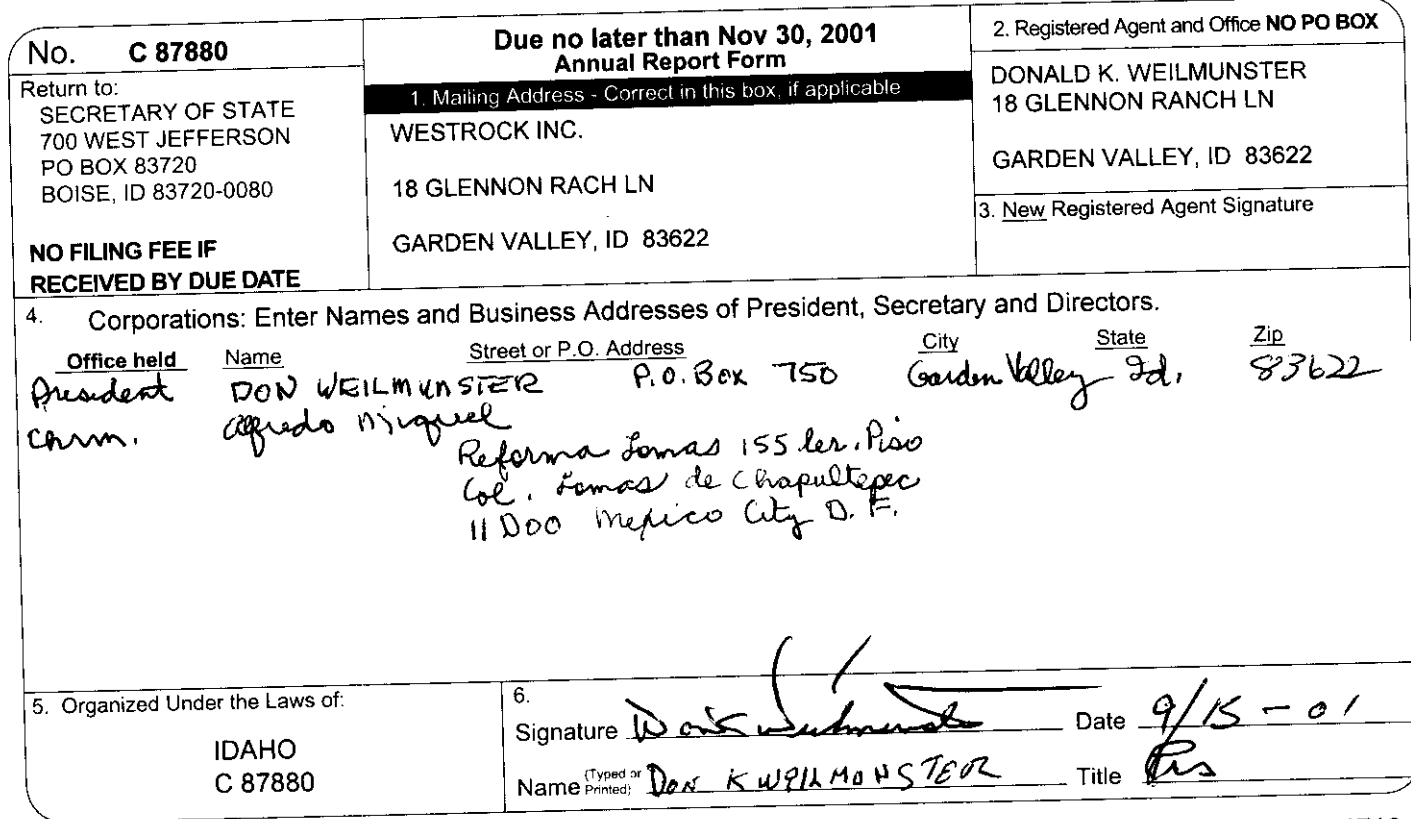 No. C 87880
Return to:
SECRETARY OF STATE
700 WEST JEFFERSON
PO BOX 83720
BOISE, ID 83720-0080
NO FILING FEE IF
RECEIVED BY DUE DATE
Due no later than Nov 30, 2001
Annual Report Form
1. Mailing Address - Correct in this box, if applicable
WESTROCK INC.
18 GLENNON RACH LN
GARDEN VALLEY, ID 83622
2. Registered Agent and Office NO PO BOX
DONALD K. WEILMUNSTER
18 GLENNON RANCH LN
GARDEN VALLEY, ID 83622
3. New Registered Agent Signature
4. Corporations: Enter Names and Business Addresses of President, Secretary and Directors.
Office held Name Street or P.O. Address City State Zip
President DON WEILMUNSTER P.O. Box 750 Garden Valley Id. 83622
Chrm. Alfredo Miguel
Reforma Lomas 155 1er. Piso
Col. Lomas de Chapultepec
11000 Mexico City D.F.
5. Organized Under the Laws of:
IDAHO
C 87880
6.
Signature Date 9/15-01
Name (Typed or Printed) DON K WEILMUNSTER Title Pres